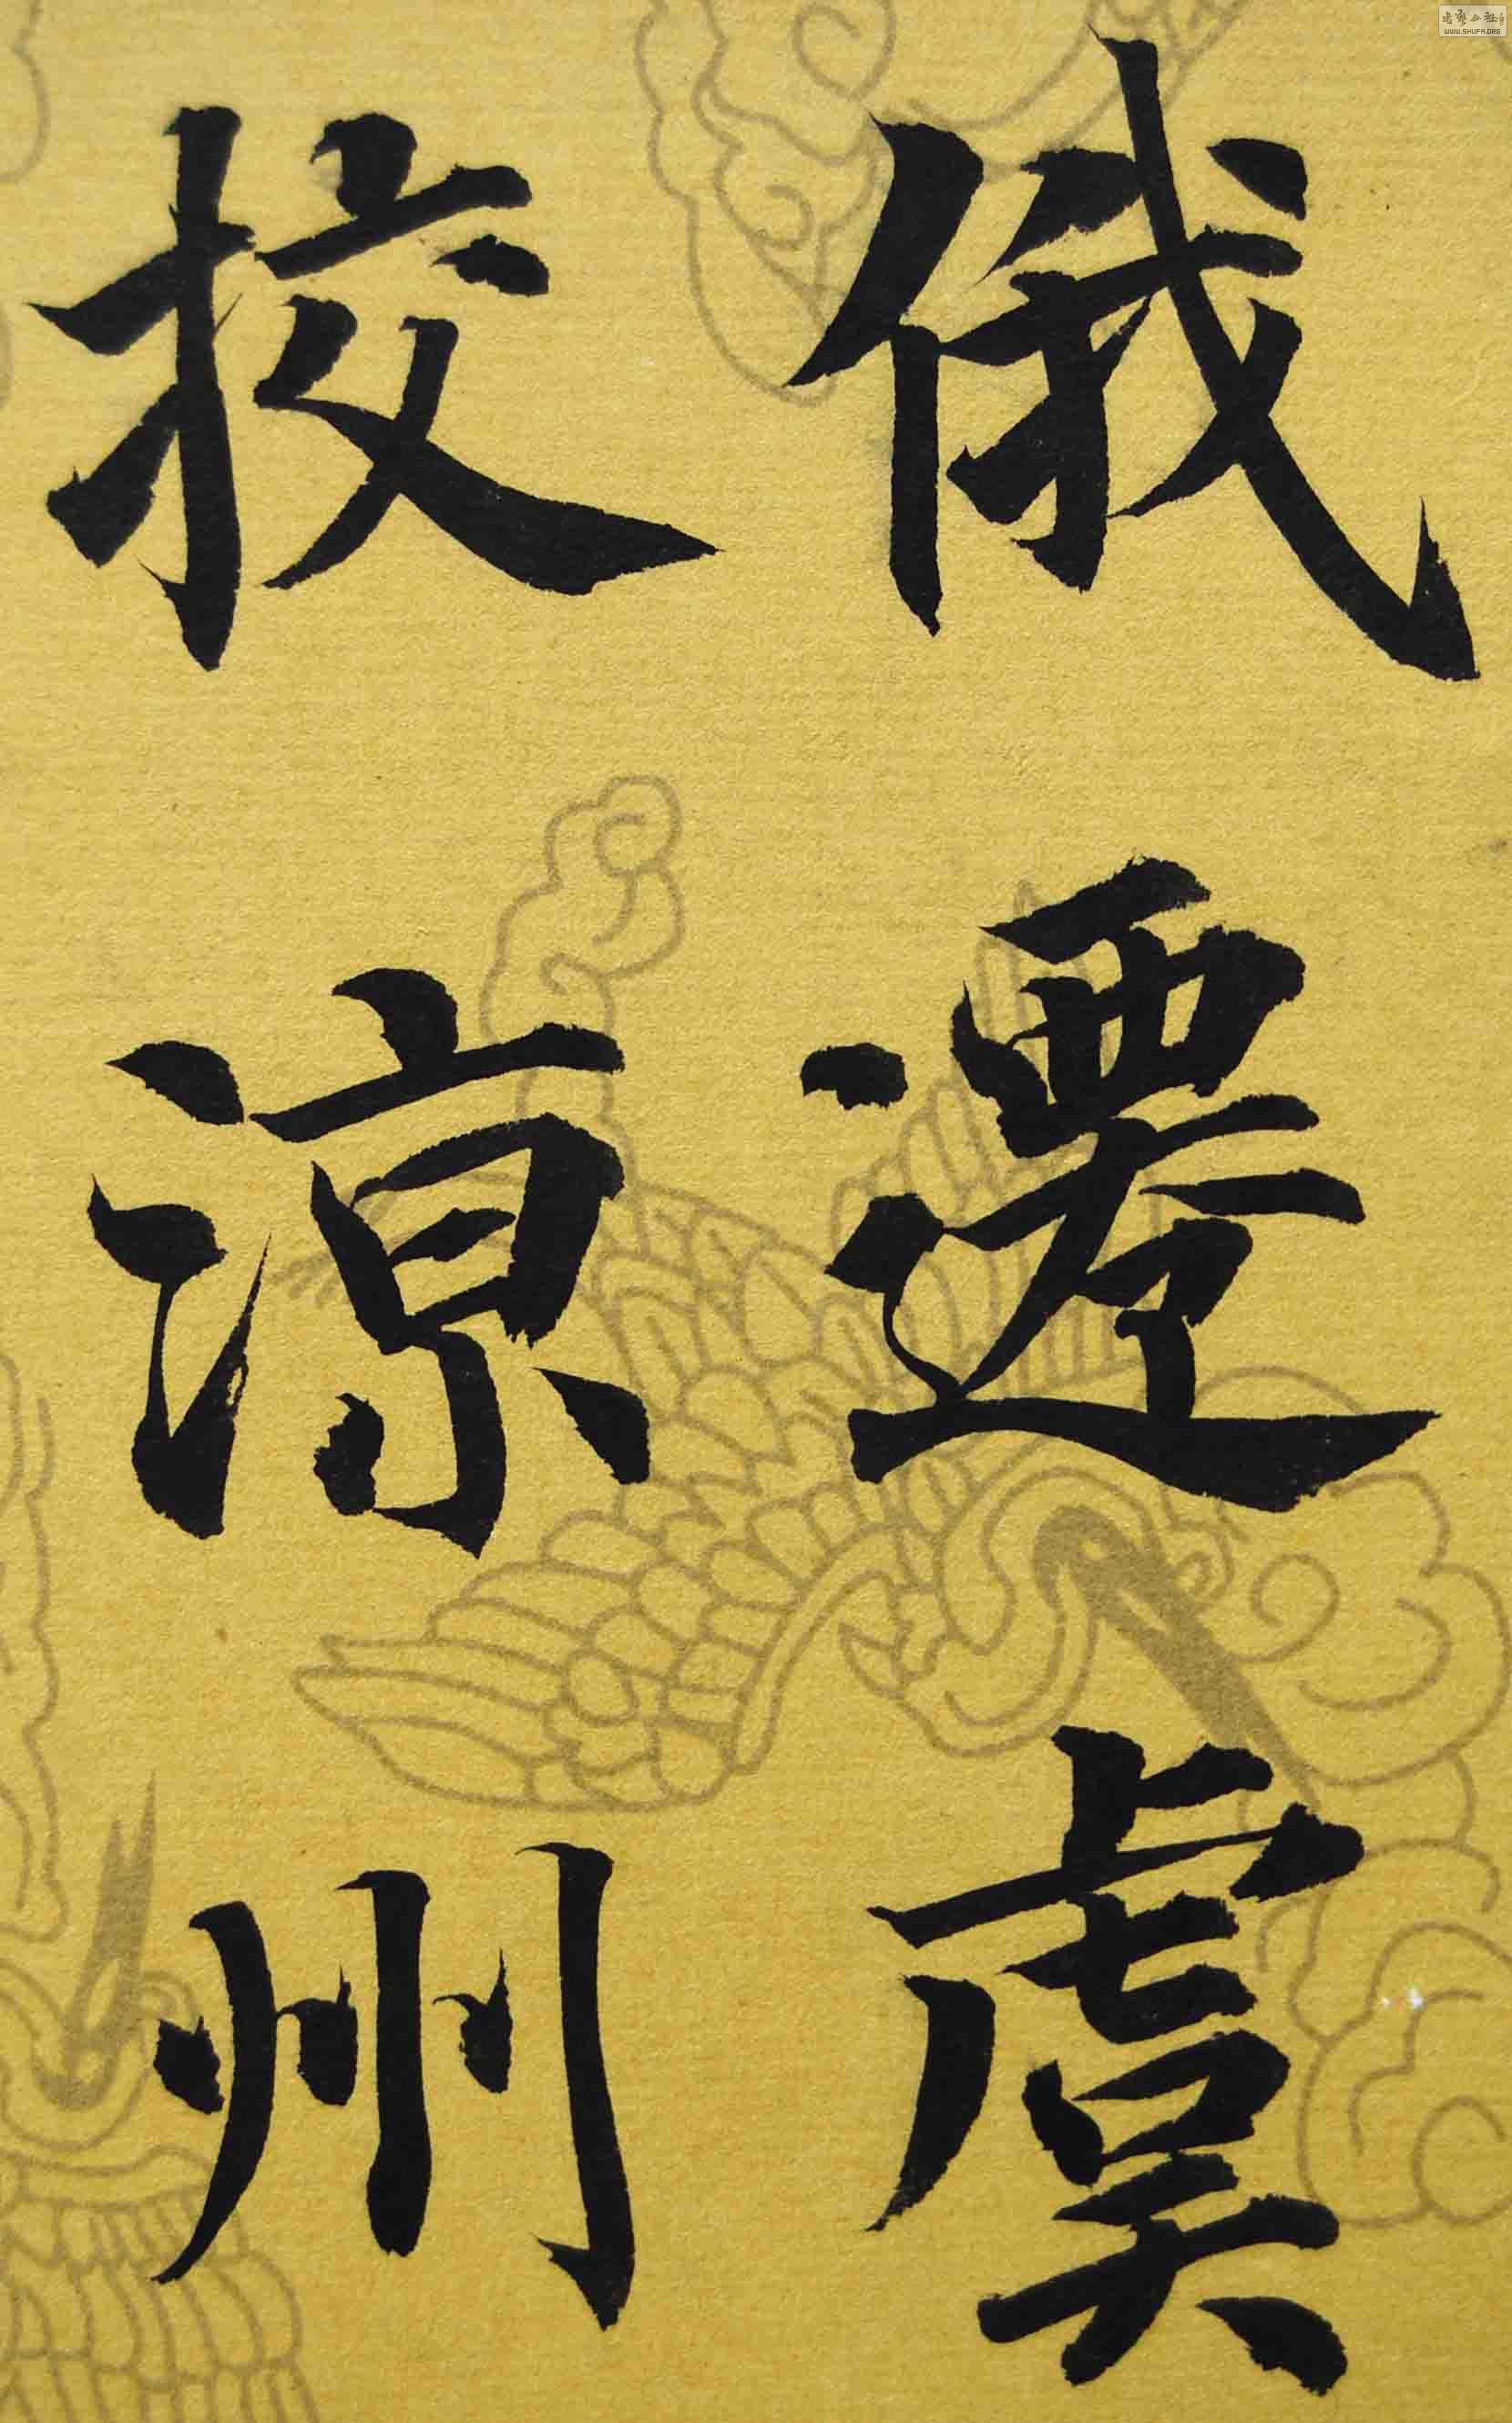 俄遷虞
挍涼州
书艺公社
WWW.SHUFA.ORG